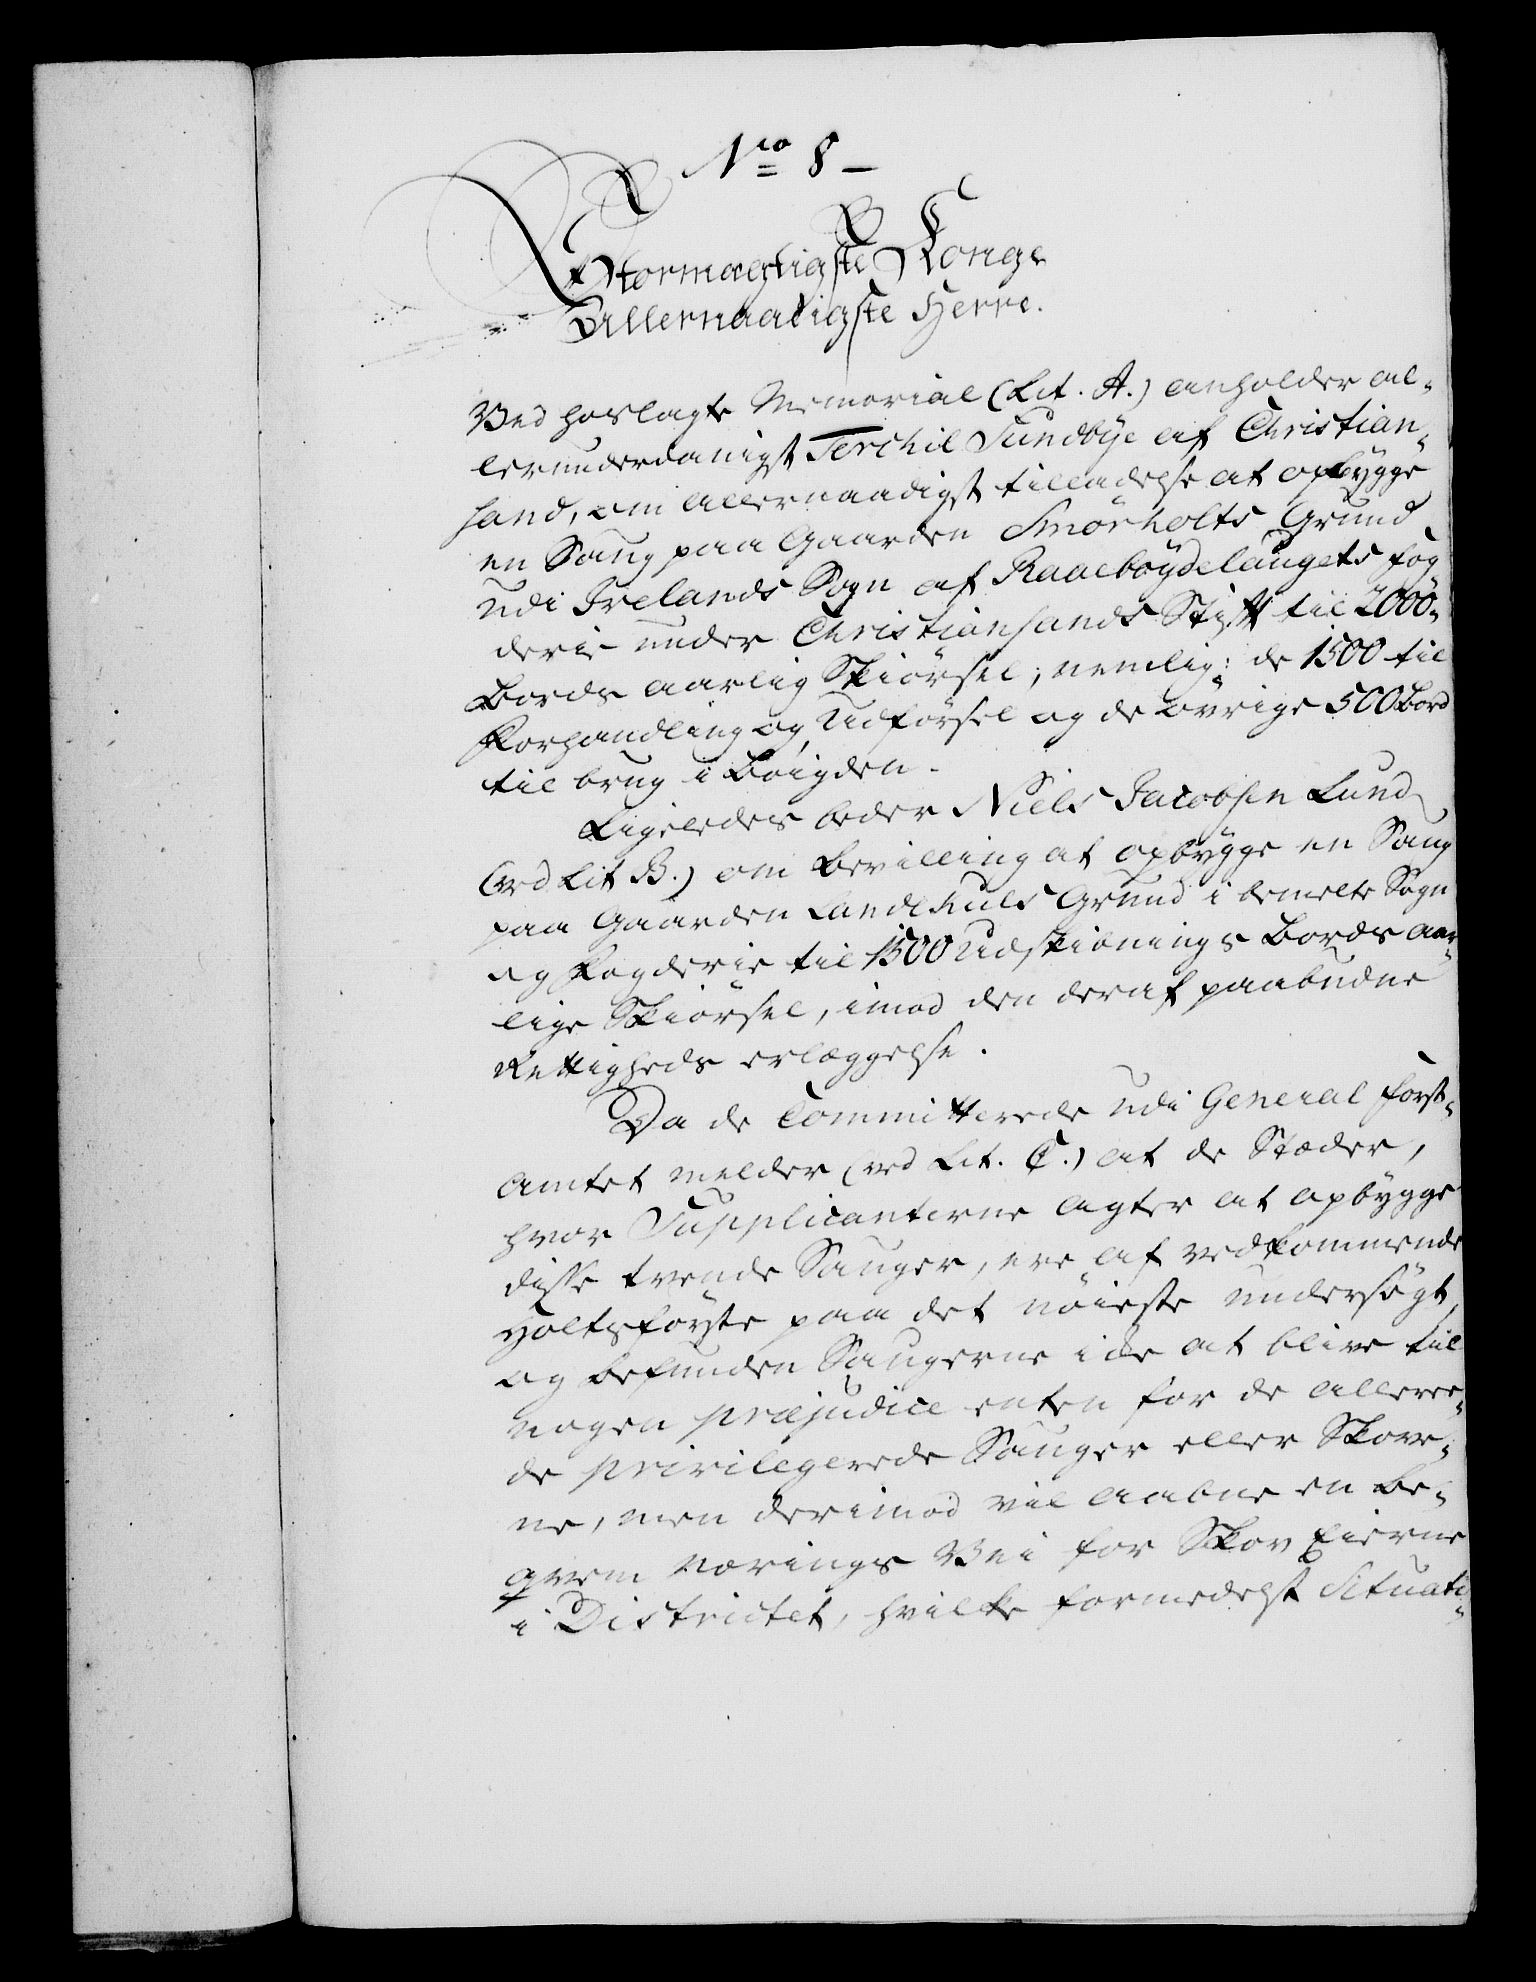 Nro 8 –
Stormægtigste Konge
Allernaadigste Herre.
Ved hoslagte Memorial (Lit. A.) anholder al-
lerunderdanigst Terchil Sundbye af Christian-
sand, om allernaadigst tilladelse at opbygge
en Saug paa Gaarden Smörholts Grund
udi Irelands Sogn af Raaebøydelaugets fog
derie under Christiansands Stift til 2000-
Bords aarlig Skiørsel; nemlig: de 1500 til
Forhandling og Udførsel og de øvrige 500 Bord
til brug i Bøigden.
Ligeledes beder Niels Jacobsen Lund
(ved Lit B.) om Bevilling at opbygge en Saug
paa Gaarden Landehuls Grund i bemelte Sogn
og Fogderie til 1500 Udskibnings Bords aar-
lige Skiørsel, imod den deraf paabudne
Rettigheds erlæggelse.
Da de Committerede udi General Forst-
amtet melder (ved Lit. C.) at de Stæder,
hvor Supplicanterne agter at opbygge
disse tvende Sauger, ere af vedkommende
Holtsførste paa det nøieste undersøgt,
og befunden Saugerne ide at blive til
nogen præjudice enten for de alleree-
de privilegerede Sauger eller Skove-
ne, men derimod vil aabne en be-
qvem Nærings Vei for Skov Eierne
i Districtet, hvilke formedelst Situati-